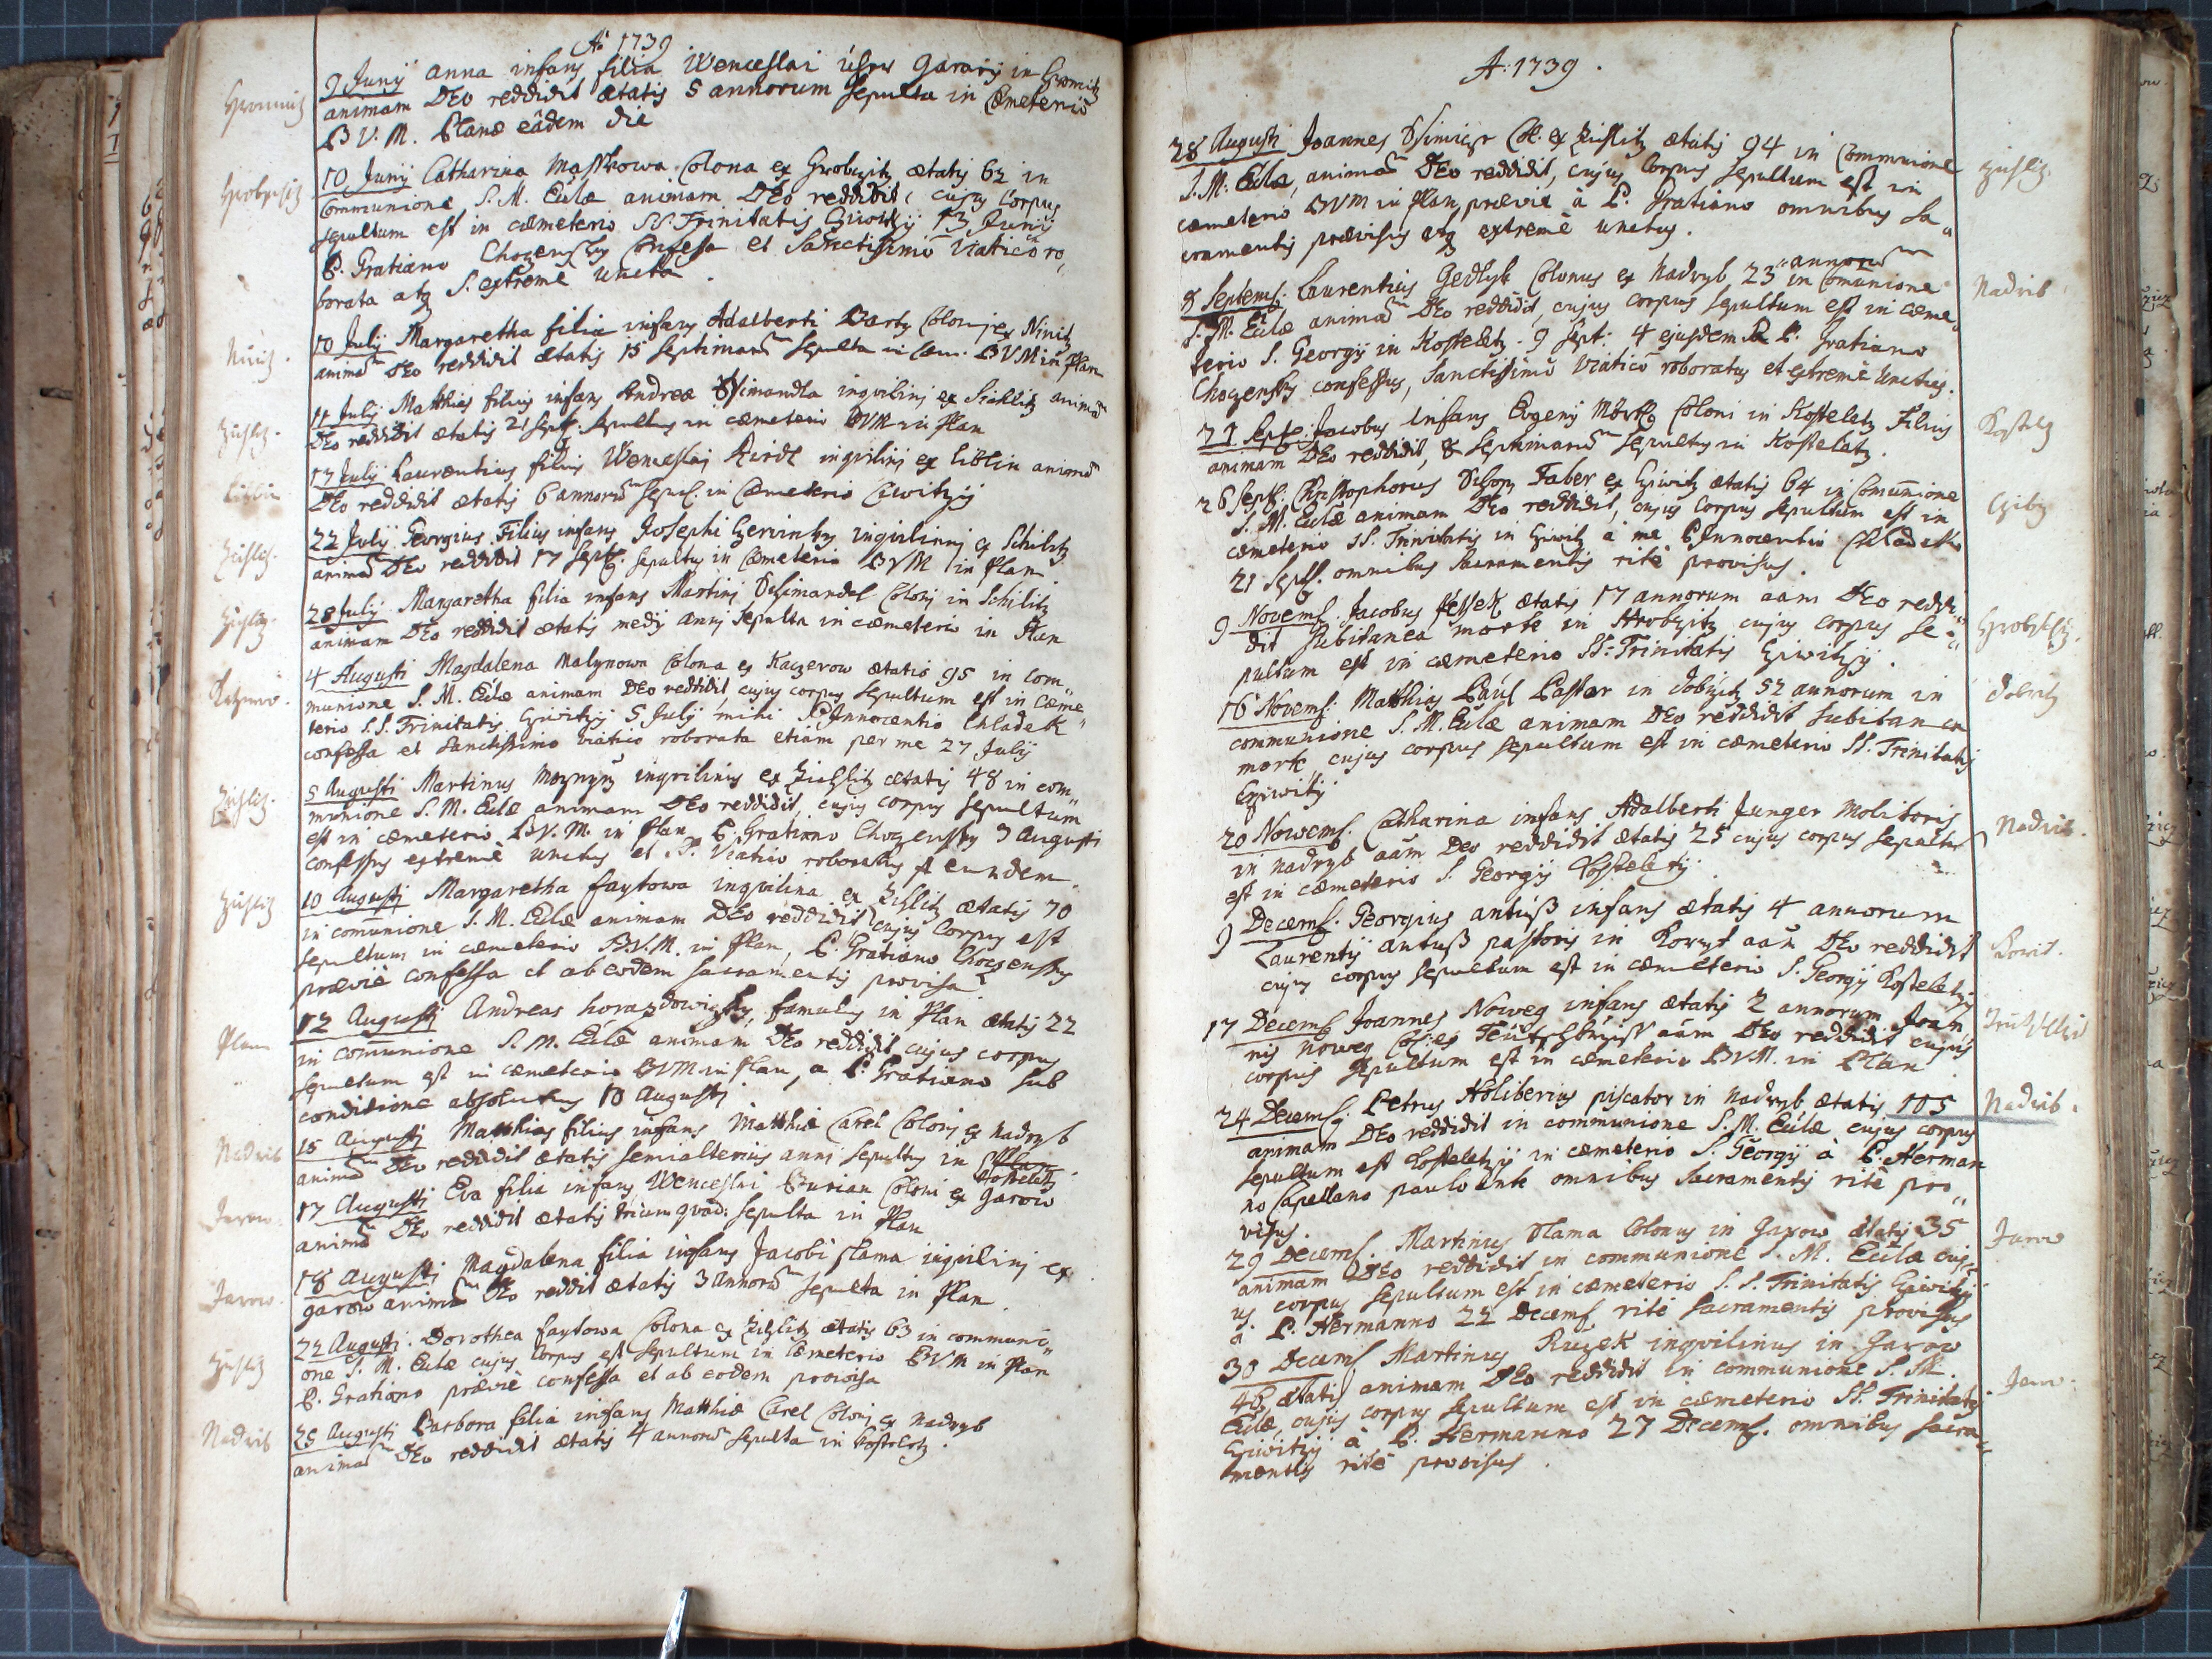 Aō 1739
9 Junij anna infans filia Wenceslai in Hromitz
animam DEO reddidit ætatis 5 annorum sepulta in Cæmeterio
B V. M. Planæ eâdem die
Hromitz
10 Junij Catharina Colona ex Hrobczitz ætatis 62 in
Communione S. M. Eulæ animam DEO reddidit, cujus Corpus
sepultum est in cæmeterio SS. Trinitatis 13 Junij
P. Gratiano Choczensky Confessa et Sanctissimo viatico ro,,
borata atq S. extremè uncta.
10 Julij Margaretha filia infans Adalberti Barty Colonj ex Ninitz
animam DEO reddidit ætatis 15 septimanar sepulta in Cæm. BVM in Plan
11 Julij Matthias filius infans Andreæ inqvilinj ex animam
DEO reddidit ætatis 2 sept. sepultus in cæmeterio BVM in Plan
17 Julij Laurentius filius Wenceslaj inqvilinj ex Liblin animam
DEO reddidit ætatis 6 annorum sepul. in Cæmeterio
Liblin
22 Julij Georgius Filius infans Josephi inqvilinj ex
animam DEO reddidit 17 sept. sepultus in Cæmeterio BVM in Plan
28 Julij Margaretha filia infans Martinj Colonj in Schilitz
animam DEO reddidit ætatis medij annj sepulta in cæmeterio in Plan
4 Augusti Magdalena Malynowa Colona ex Kaczerow ætatis 95 in Com,,
munione S. M. Eulæ animam DEO reddidit, cujus corpus sepultum est in Cæme,,
terio S.S. Trinitatis 5 Julij mihi P. Innocentio Chladek
confessa et Sanctissimo viatico roborata etiam per me 27 Julij
5 Augusti Martinus inqvilinus ex ætatis 48 in com,,
munione S. M. Eulæ animam DEO reddidit, cujus corpus sepultum
est in cæmeterio B.V.M. in Plan P. Gratiano Choczensky 3 Augusti
confessus extremè unctus et S. Viatico roboratus eundem
10 Augusti Margaretha faytowa inqvilina ex ætatis 70
in comunione S. M. Eulæ animam DEO reddidit cujus Corpus est
sepultum in cæmeterio B.V.M. in Plan, P. Gratiano Choczensky
præviè confessa et ab eodem sacramentis provisa
12 Augusti Andreas famulus in Plan ætatis 22
in comunione S. M. Eulæ animam DEO reddidit cujus corpus
sepultum est in cæmeterio BVM in Plan, a P. Gratiano sub
conditione absolutus 10 Augusti
Plan
15 Augusti Matthias filius infans Matthiæ Carel Colonj ex Nadryb
animam DEO reddidit ætatis semialterius anni sepultus in Kosteletz
Nadrib
17 Augusti Eva filia infans Wenceslai Burian Coloni ex Garow
animam DEO reddidit ætatis trium sepulta in Plan
Jarow.
18 Augusti Magdalena filia infans Jacobi slama inqvilinj ex
garow animam DEO reddit ætatis 3 annorum sepulta in Plan
Jarow.
22 Augusti. Dorothea faytowa Colona ex ætatis 63 in communi,,
one S. M. Eulæ cujus Corpus est sepultum in Cæmeterio BVM in Plan
P. Gratiano præviè confessa et ab eodem provisa
25 Augusti Barbora filia infans Matthiæ Carel Colonj ex Nadryb
animam DEO reddidit ætatis 4 annorum sepulta in Kosteletz.
Nadrib
A: 1739.
28 Augusti Joannes Col. ex ætatis 94 in Communione
S. M: Eulæ, animam DEO reddidit, cujus Corpus sepultum est in
cæmeterio BVM in Plan præviè à P. Gratiano omnibus Sa,,
cramentis provisus atq extremè unctus.
8 Septemb: Laurentius Gedlyk Colonus ex Nadryb 23 annorum in Comunione
S. M. Eulæ animam DEO reddidit, cujus corpus sepultum est in Cæme,,
terio S. Georgij in Kosteletz. 9 Sept: 4 ejusdem P. Gratiano
Choczensky confessus, Sanctissimo viatico roboratus et extremè unctus.
Nadrib
Sept: Jacobus infans Evgenij Coloni in Kosteletz Filius
animam DEO reddidit, 8 septimanar sepultus in Kosteletz.
26 Sept: Faber ex ætatis 64 in Comunione
S. M. Eulæ animam DEO reddidit, cujus Corpus sepultum est in
cæmeterio SS. Trinitatis in à me P. Innocentio Chladek
21 Sept. omnibus Sacramentis ritè provisus.
9 Novemb: Jacobus ætatis 17 annorum aam DEO reddi,,
dit subitanea morte in Hrobczitz cujus corpus se,,
pultum est in cæmeterio SS: Trinitatis
16 Novemb: Matthias Paul Pastor in 52 annorum in
communione S. M. Eulæ animam DEO reddidit subitanea
morte cujus corpus sepultum est in cæmeterio SS. Trinitatis
20 Novemb. Catharina infans Adalberti Junger Molitoris
in Nadryb aam DEO reddidit ætatis 25 cujus corpus sepultum
est in cæmeterio S. Georgij
Nadrib.
9 Decemb: Georgius antuß infans ætatis 4 annorum
Laurentij antuß pastoris in aam DEO reddidit
cujus corpus sepultum est in cæmeterio S. Georgij
17 Decemb Joannes Noweg infans ætatis 2 annorum Joan,,
nis Noweg Col: ex aam DEO reddidit cujus
corpus sepultum est in cæmeterio BVM. in Plan
24 Decemb: Petrus Holiberius piscator in Nadryb ætatis 105
animam DEO reddidit in communione S. M. Eulæ cujus corpus
sepultum est in cæmeterio S. Georgij à P. Herman
no Capellano paulo ante omnibus Sacramentis ritè pro,,
visus.
Nadrib.
29 Decemb. Martinus Slama Colonus in Garow ætatis 35
animam DEO reddidit in communione S. M. Eulæ cuj,,
us corpus sepultum est in cæmeterio S. S. Trinitatis
à P. Hermanno 22 Decemb. ritè Sacramentis provisus
Jarow
30 Decemb Martinus inqvilinus in Garow
ætatis animam DEO reddidit in communione S. M.
Eulæ, cujus corpus sepultum est in cæmeterio SS. Trinitatis
à P. Hermanno 27 Decemb. omnibus sacra,,
mentis ritè provisus.